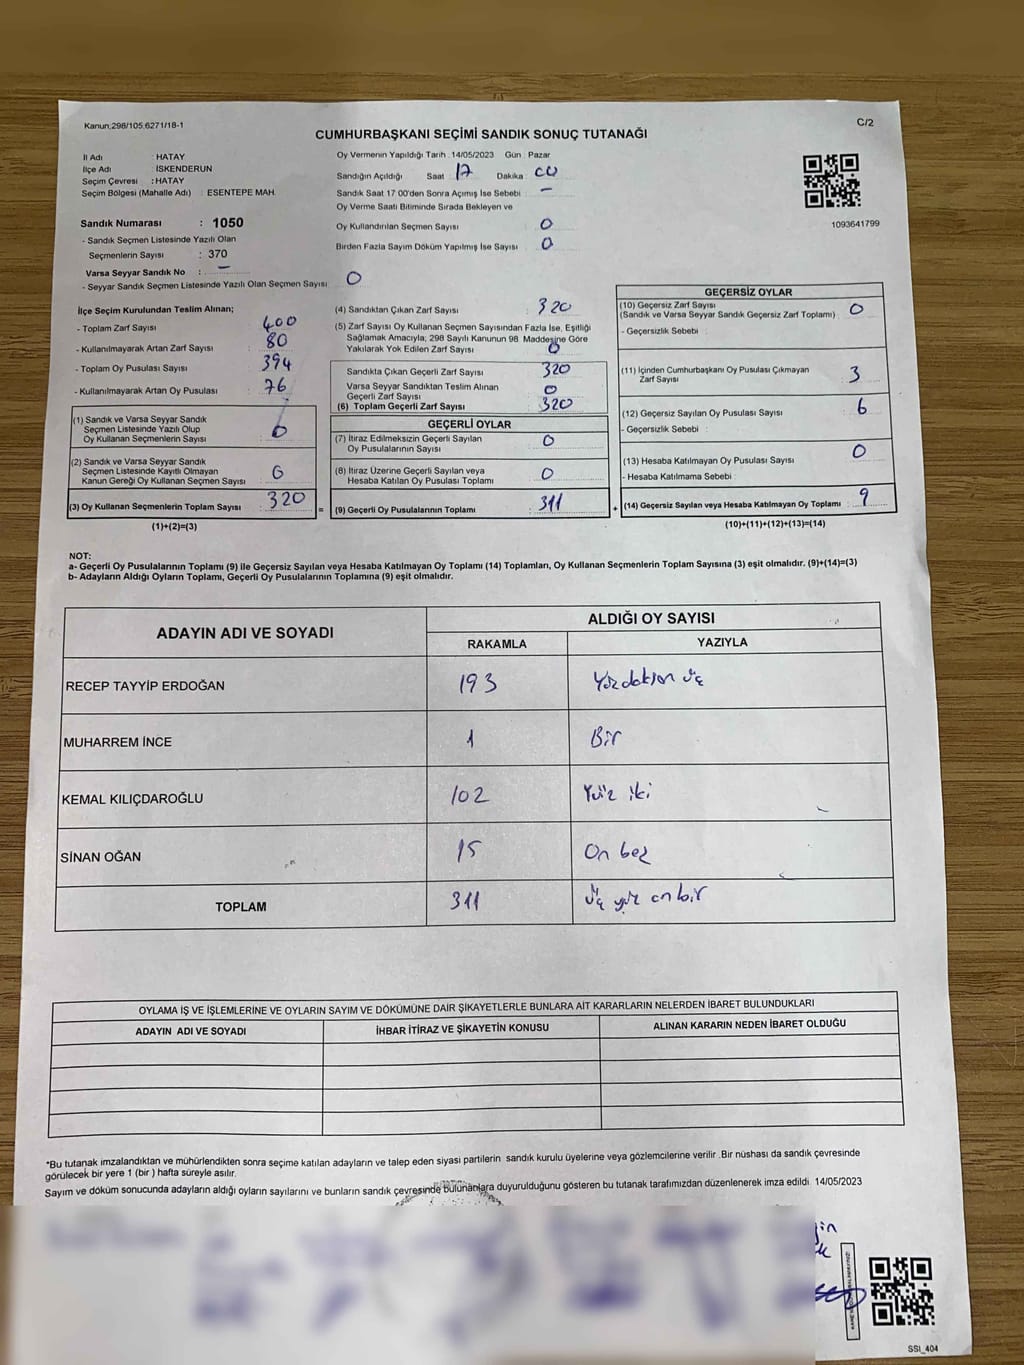 Kanun:298/105:6271/18-1
C/2
CUMHURBAŞKANI SEÇİMİ SANDIK SONUÇ TUTANAĞI
İl Adı : HATAY
İlçe Adı : İSKENDERUN
Seçim Çevresi : HATAY
Seçim Bölgesi (Mahalle Adı) : ESENTEPE MAH.
Oy Vermenin Yapıldığı Tarih : 14/05/2023 Gün : Pazar
Sandığın Açıldığı Saat 17 Dakika 00
Sandık Saat 17:00'den Sonra Açımış İse Sebebi : -
Oy Verme Saati Bitiminde Sırada Bekleyen ve
Oy Kullandırılan Seçmen Sayısı 0
Birden Fazla Sayım Döküm Yapılmış İse Sayısı 0
1093641799
Sandık Numarası : 1050
- Sandık Seçmen Listesinde Yazılı Olan
Seçmenlerin Sayısı : 370
Varsa Seyyar Sandık No : -
- Seyyar Sandık Seçmen Listesinde Yazılı Olan Seçmen Sayısı 0
İlçe Seçim Kurulundan Teslim Alınan;
- Toplam Zarf Sayısı 400
- Kullanılmayarak Artan Zarf Sayısı 80
- Toplam Oy Pusulası Sayısı 394
- Kullanılmayarak Artan Oy Pusulası 76
(1) Sandık ve Varsa Seyyar Sandık
Seçmen Listesinde Yazılı Olup
Oy Kullanan Seçmenlerin Sayısı
(2) Sandık ve Varsa Seyyar Sandık
Seçmen Listesinde Kayıtlı Olmayan
Kanun Gereği Oy Kullanan Seçmen Sayısı
(3) Oy Kullanan Seçmenlerin Toplam Sayısı 320
(1)+(2)=(3)
(4) Sandıktan Çıkan Zarf Sayısı 320
(5) Zarf Sayısı Oy Kullanan Seçmen Sayısından Fazla İse, Eşitliği
Sağlamak Amacıyla, 298 Sayılı Kanunun 98. Maddesine Göre
Yakılarak Yok Edilen Zarf Sayısı 0
Sandıkta Çıkan Geçerli Zarf Sayısı 320
Varsa Seyyar Sandıktan Teslim Alınan
Geçerli Zarf Sayısı 0
(6) Toplam Geçerli Zarf Sayısı 320
GEÇERLİ OYLAR
(7) İtiraz Edilmeksizin Geçerli Sayılan
Oy Pusulalarının Sayısı 0
(8) İtiraz Üzerine Geçerli Sayılan veya
Hesaba Katılan Oy Pusulası Toplamı 0
= (9) Geçerli Oy Pusulalarının Toplamı 311
GEÇERSİZ OYLAR
(10) Geçersiz Zarf Sayısı
(Sandık ve Varsa Seyyar Sandık Geçersiz Zarf Toplamı) : 0
- Geçersizlik Sebebi :
(11) İçinden Cumhurbaşkanı Oy Pusulası Çıkmayan
Zarf Sayısı 3
(12) Geçersiz Sayılan Oy Pusulası Sayısı 6
- Geçersizlik Sebebi :
(13) Hesaba Katılmayan Oy Pusulası Sayısı 0
- Hesaba Katılmama Sebebi :
+ (14) Geçersiz Sayılan veya Hesaba Katılmayan Oy Toplamı 9
(10)+(11)+(12)+(13)=(14)
NOT:
a- Geçerli Oy Pusulalarının Toplamı (9) ile Geçersiz Sayılan veya Hesaba Katılmayan Oy Toplamı (14) Toplamları, Oy Kullanan Seçmenlerin Toplam Sayısına (3) eşit olmalıdır. (9)+(14)=(3)
b- Adayların Aldığı Oyların Toplamı, Geçerli Oy Pusulalarının Toplamına (9) eşit olmalıdır.
ADAYIN ADI VE SOYADI
ALDIĞI OY SAYISI
RAKAMLA YAZIYLA
RECEP TAYYİP ERDOĞAN 193 Yüzdoksan üç
MUHARREM İNCE 1 Bir
KEMAL KILIÇDAROĞLU 102 Yüz iki
SİNAN OĞAN 15 On beş
TOPLAM 311 üç yüz on bir
OYLAMA İŞ VE İŞLEMLERİNE VE OYLARIN SAYIM VE DÖKÜMÜNE DAİR ŞİKAYETLERLE BUNLARA AİT KARARLARIN NELERDEN İBARET BULUNDUKLARI
ADAYIN ADI VE SOYADI İHBAR İTİRAZ VE ŞİKAYETİN KONUSU ALINAN KARARIN NEDEN İBARET OLDUĞU
*Bu tutanak imzalandıktan ve mühürlendikten sonra seçime katılan adayların ve talep eden siyasi partilerin sandık kurulu üyelerine veya gözlemcilerine verilir. Bir nüshası da sandık çevresinde
görülecek bir yere 1 (bir) hafta süreyle asılır.
Sayım ve döküm sonucunda adayların aldığı oyların sayılarını ve bunların sandık çevresinde bulunanlara duyurulduğunu gösteren bu tutanak tarafımızdan düzenlenerek imza edildi. 14/05/2023
SSI_404